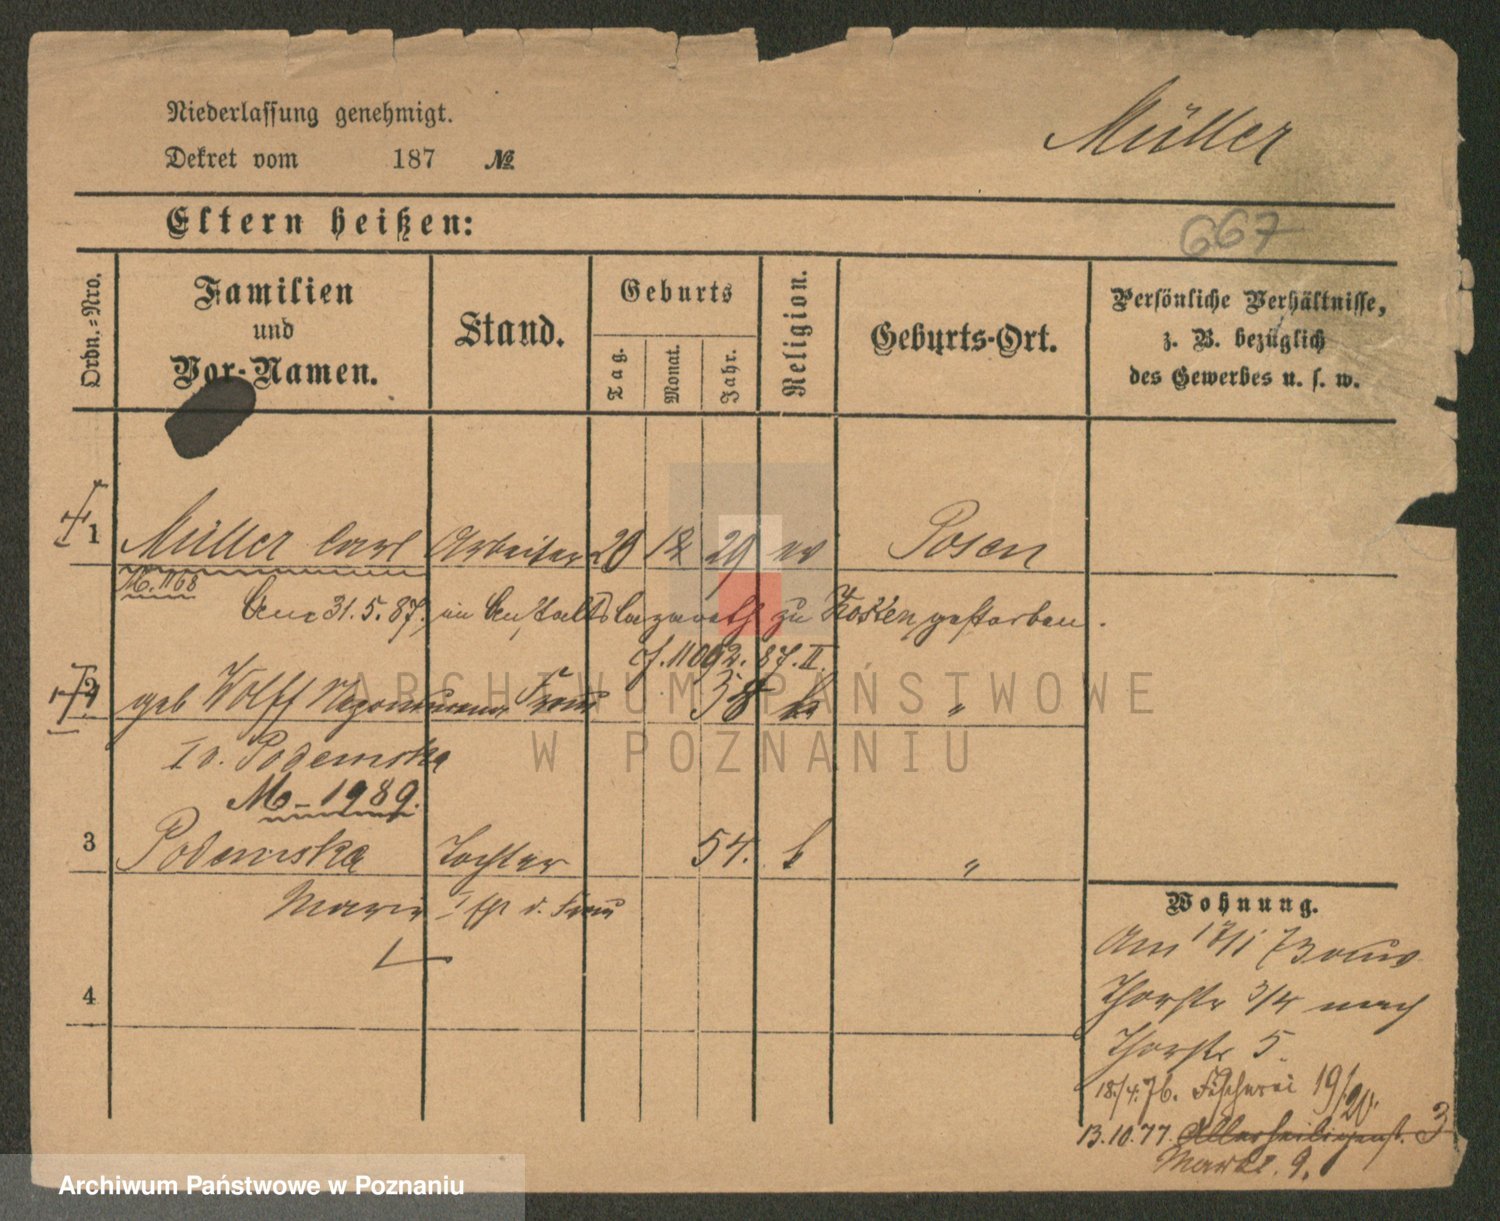 Niederlassung genehmigt.
Müller
Dekret vom 187 №
Eltern heißen:
667
Ordn.=Nro.
Familien und Vor-Namen.
Stand.
Geburts
Tag. Monat. Jahr.
Religion.
Geburts-Ort.
Persönliche Verhältnisse,
z. B. bezüglich
des Gewerbes u. s. w.
1 Müller Carl Arbeiter 20 12 29 ev Posen
M. 1168
Am 31.5.87. im Anstaltslazareth zu Kosten gestorben.
cf. 11092. 87. II.
2 geb Wolff Frau 38 k "
I v. Podemska
M 1989.
3 Podemska Tochter 54. k "
Marie I Ehe d. Frau
4
Wohnung.
Am 17/1 73 von
Thorstr 3/4 nach
Thorstr 5.
18./4.76. Fischerei 19/20.
13.10.77. Allerheiligenst. 3
Markt. 9.
ARCHIWUM PAŃSTWOWE
W POZNANIU
Archiwum Państwowe w Poznaniu